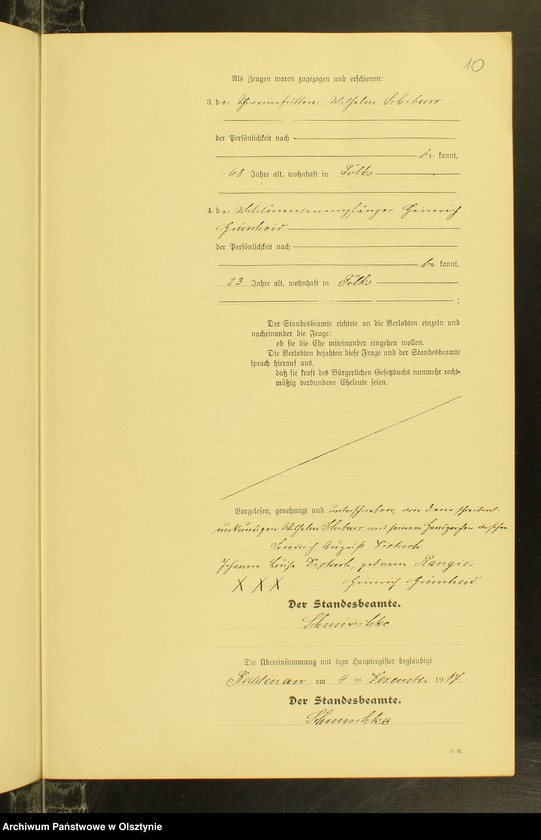 10
Als Zeugen waren zugezogen und erschienen:
3. der Wilhelm
der Persönlichkeit nach
be kannt,
68 Jahre alt, wohnhaft in Tolks
4. der Heinrich
Grünheid
der Persönlichkeit nach
be kannt,
23 Jahre alt, wohnhaft in Tolks
;
Der Standesbeamte richtete an die Verlobten einzeln und
nacheinander die Frage:
ob sie die Ehe miteinander eingehen wollen.
Die Verlobten bejahten diese Frage und der Standesbeamte
sprach hierauf aus,
daß sie kraft des Bürgerlichen Gesetzbuchs nunmehr recht-
mäßig verbundene Eheleute seien.
Vorgelesen, genehmigt und unterschrieben, von dem schreibens-
unkundigen Wilhelm mit seinem Handzeichen versehen
Friedrich August Dietrich
Johanna Louise Dietrich, geborene
X X X Heinrich Grünheid
Der Standesbeamte.
Die Übereinstimmung mit dem Hauptregister beglaubigt
Reddenau am 4 ten Dezember 1917.
Der Standesbeamte.
Archiwum Państwowe w Olsztynie